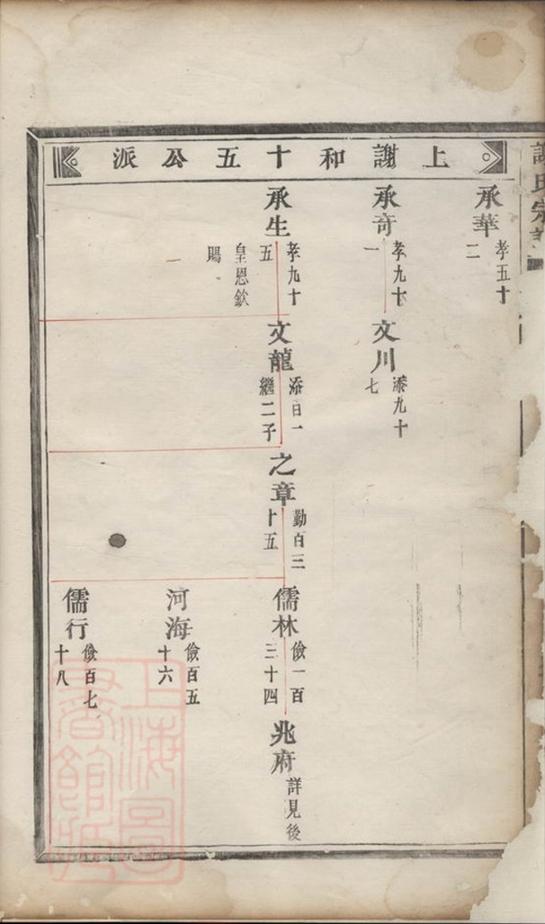 謝氏宗譜
上謝和十五公派
承華
孝五十
二
承奇
孝九十
一
文川
添九十
七
承生
孝九十
五
皇恩欽
賜
文龍
添百一
繼二子
之章
勤百三
十五
儒林
儉一百
三十四
兆府
詳見後
河海
儉百五
十六
儒行
儉百七
十八
上海圖
書館藏